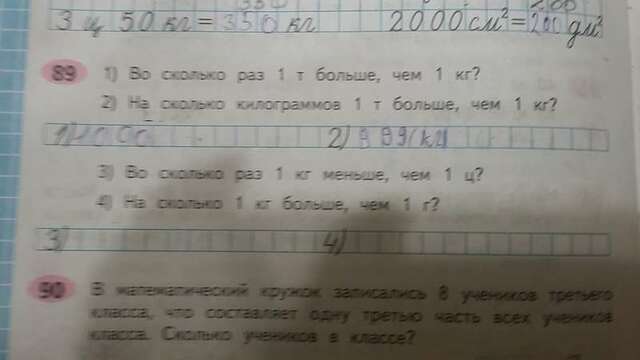 3 ц 50 кг = 350 кг 2000 см² = 200 дм²
89 1) Во сколько раз 1 т больше, чем 1 кг?
2) На сколько килограммов 1 т больше, чем 1 кг?
1) 1000 2) 999 кг
3) Во сколько раз 1 кг меньше, чем 1 ц?
4) На сколько 1 кг больше, чем 1 г?
3) 4)
90 В математический кружок записались 8 учеников третьего
класса, что составляет одну третью часть всех учеников
класса. Сколько учеников в классе?